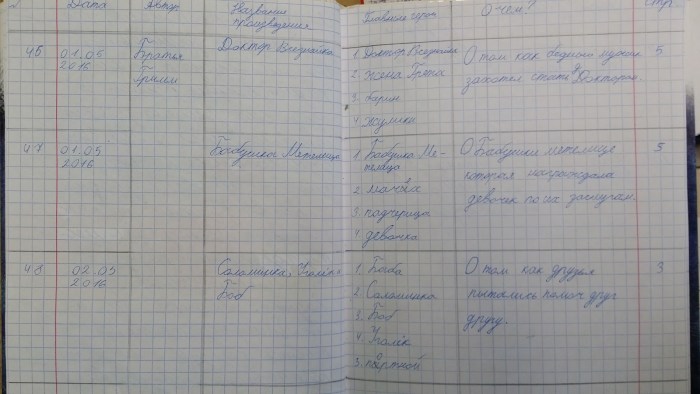 Дата
Автор
Название
произведения
Главные герои
О чём?
Стр.
46
01.05
2016
Братья
Гримм
Доктор Всезнайка
1. Доктор Всезнайка
2. Жена Грета
3. барин
4.
О том как бедного мужик
захотел стать Доктором.
5
47
01.05
2016
Бабушка Метелица
1. Бабушка Ме-
телица
2. мачеха
3. падчерица
4. девочка
О Бабушки метелице
которая награждала
девочек по их заслугам.
5
48
02.05
2016
Соломинка, Уголёк и
Боб
1. Баба
2. Соломинка
3. Боб
4. Уголёк
5. портной
О том как друзья
пытались помоч друг
другу.
3